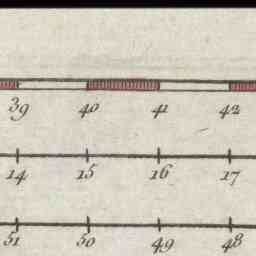 39 40 41 42
14 15 16 17
51 50 49 48